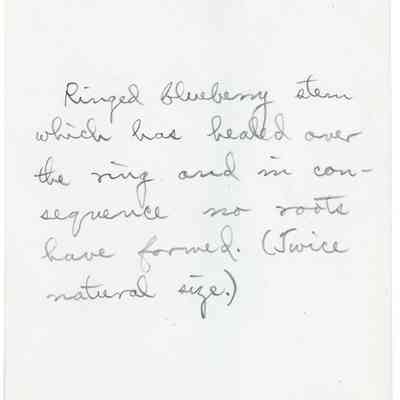 Ringed Blueberry stem
which has healed over
the ring and in con-
sequence no roots
have formed. (Twice
natural size.)